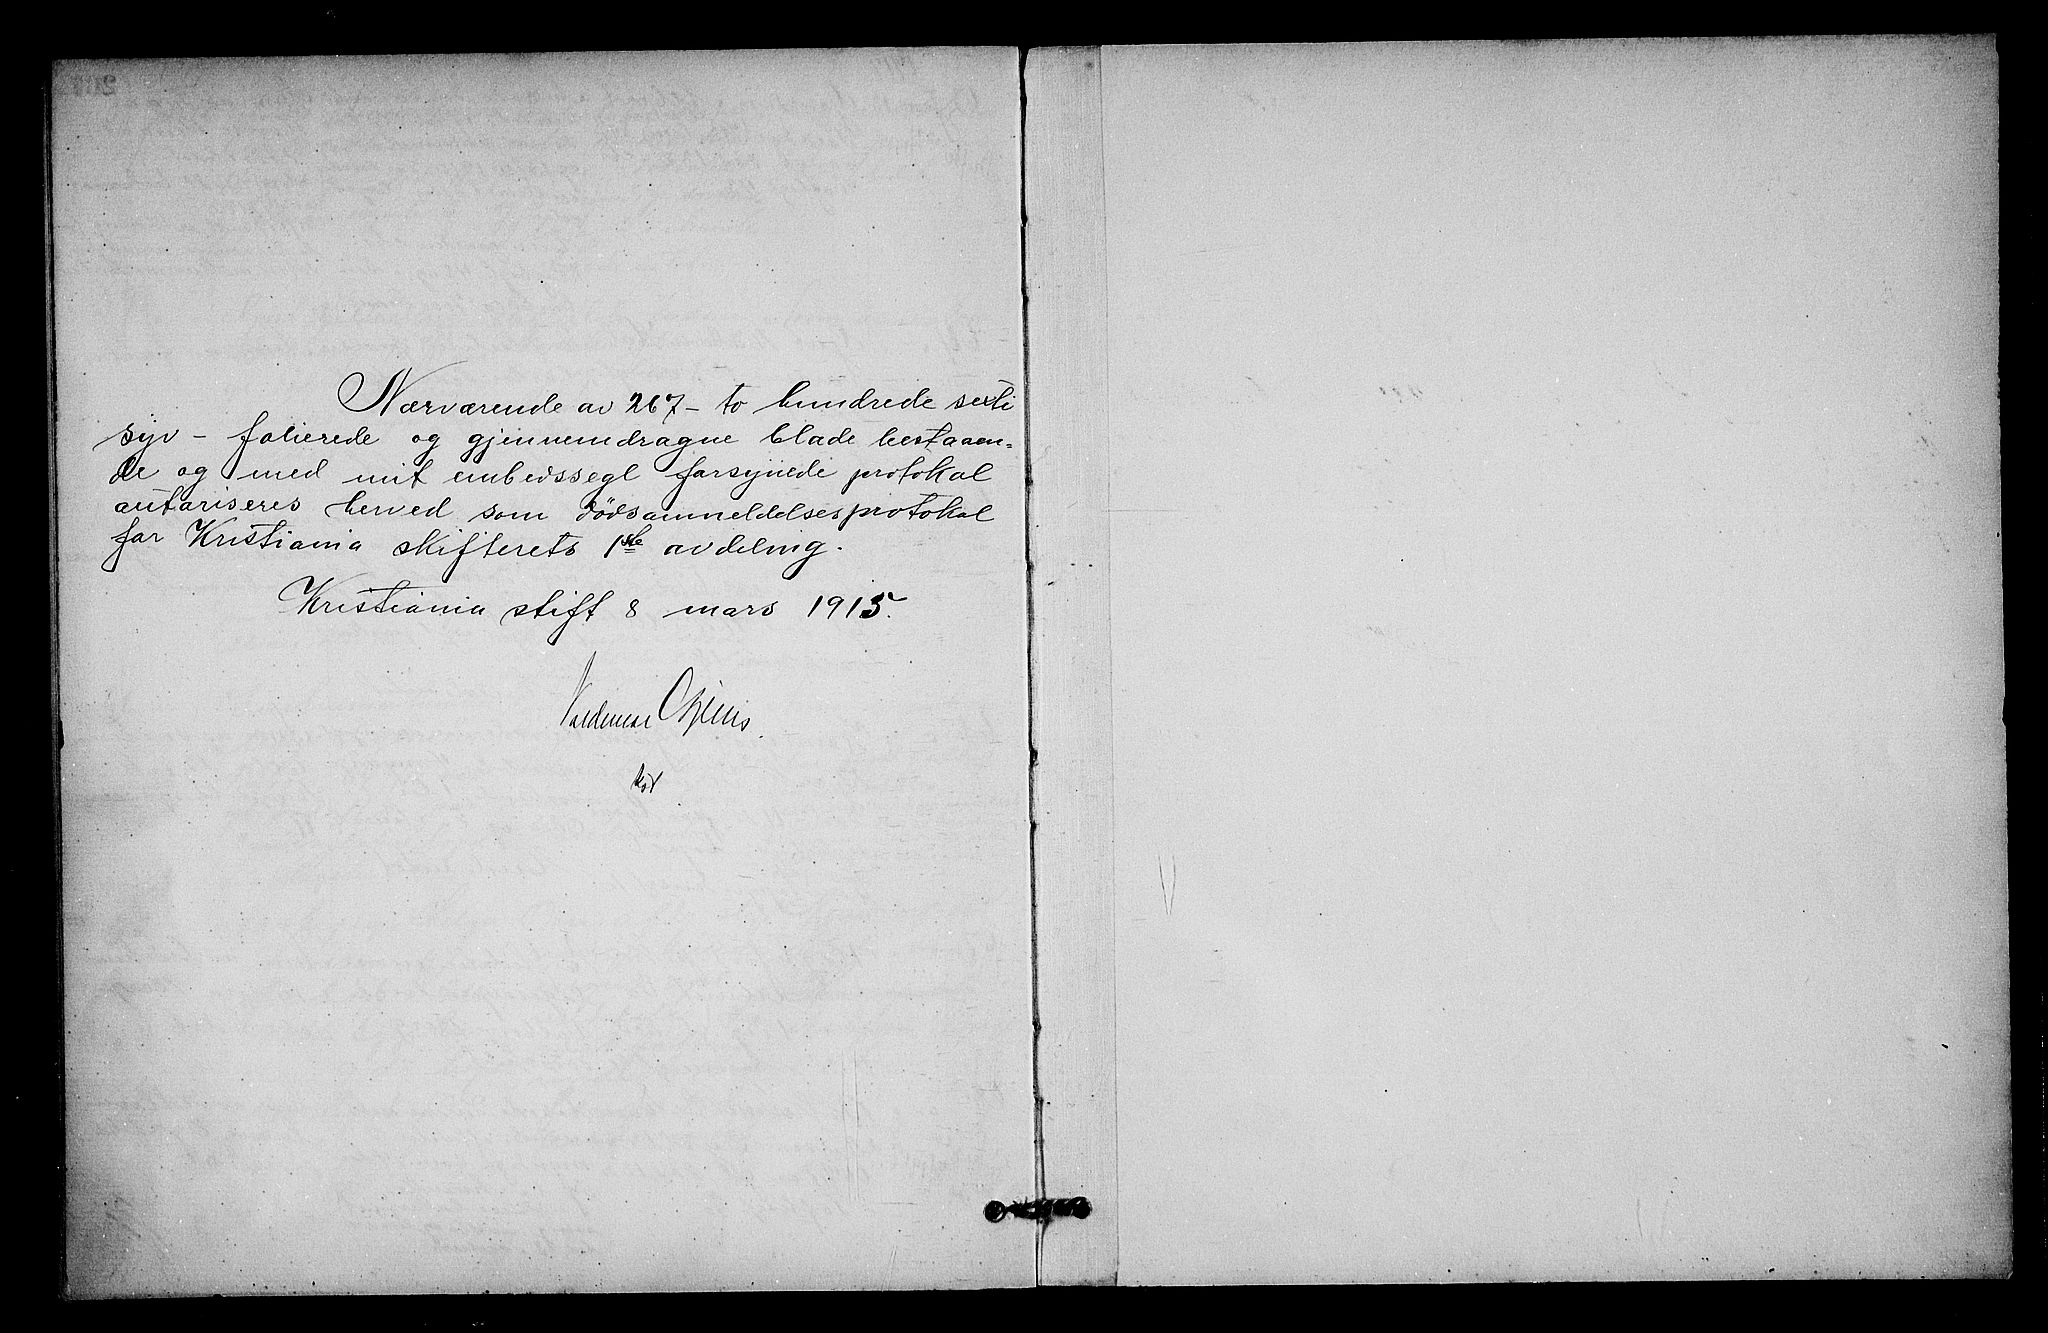 Nærværende av 267 - to hundrede sexti
syv - folierede og gjennemdragne blade bestaaen=
de og med mit embedssegl forsynede protokol
autoriseres herved som dödsanmeldelsesprotokol
for Kristiania skifterets 1ste avdeling.
Kristiania stift 8 mars 1915.
Valdemar
kst